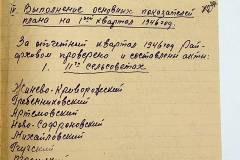 IV. Выполнение основных показателей
плана на 1ый квартал 1946 году.
За отчетный квартал 1946 год Рай-
архивом проверено и составлены акты:
1. 11ти сельсоветах
Жинево-Криворожский
Гребенниковский
Артемовский
Ново-Софроновский
Михайловский